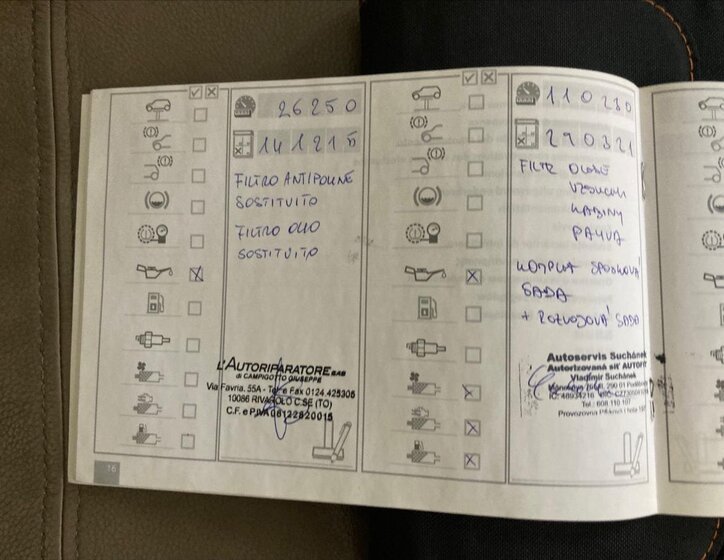 26250
141215
FILTRO ANTIPOLINE
SOSTITUITO
FILTRO OLIO
SOSTITUITO
L'AUTORIPARATORE SAS
di CAMPIGOTTO GIUSEPPE
Via Favria, 55A - Tel e Fax 0124.425305
10086 RIVAROLO C.SE (TO)
C.F. e P.IVA 06122820015
16
110230
290321
FILTR OLEJE
VZDUCHU
KABINY
PALIVA
SADA
+ ROZVODOVÁ SADA
Autoservis Suchánek
Autorizovaná síť AUTOFIT
Vladimír Suchánek
290 01 Poděbrady
IČ: 46934216
Tel.: 608 110 197
Provozovna